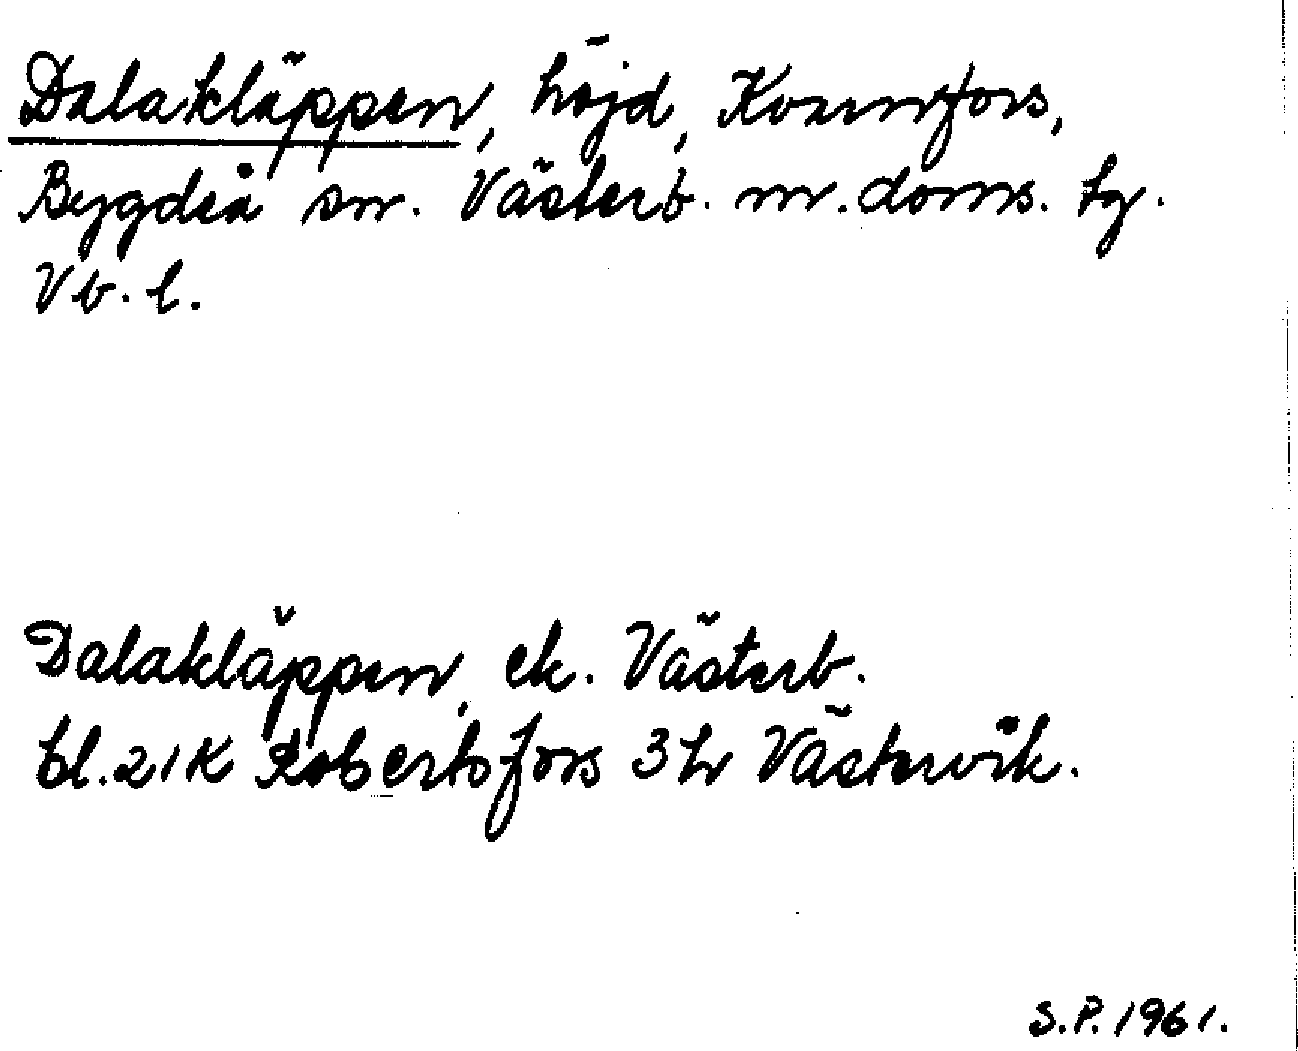 Dalakläppen, höjd, Kvarnfors,
Bygdeå sn. Västerb. m. doms. tg.
Vb. l.
Dalakläppen, ek. Västerb.
bl. 21K Robertsfors 3 h Västervik.
S.P. 1961.